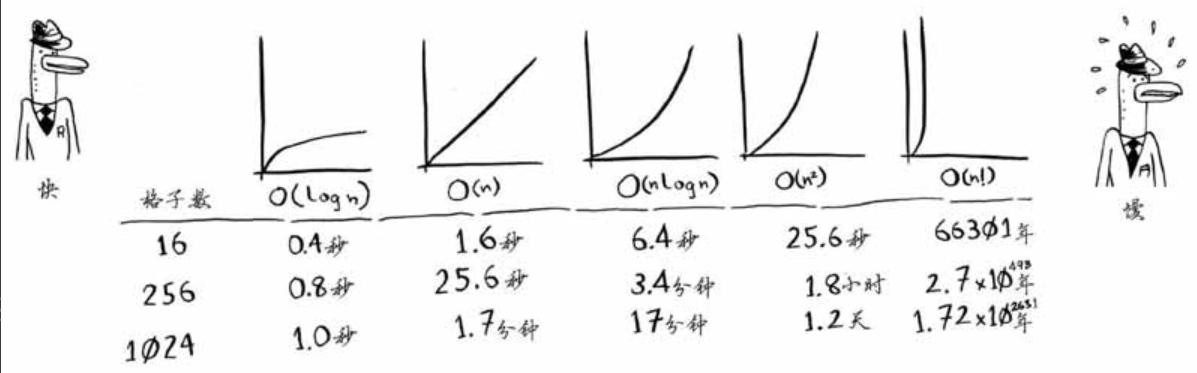 R
R
快
慢
格子数 O(log n) O(n) O(n log n) O(n²) O(n!)
16 0.4秒 1.6秒 6.4秒 25.6秒 66301年
256 0.8秒 25.6秒 3.4分钟 1.8小时 2.7×10⁴⁹⁸年
1024 1.0秒 1.7分钟 17分钟 1.2天 1.72×10²⁶³¹年